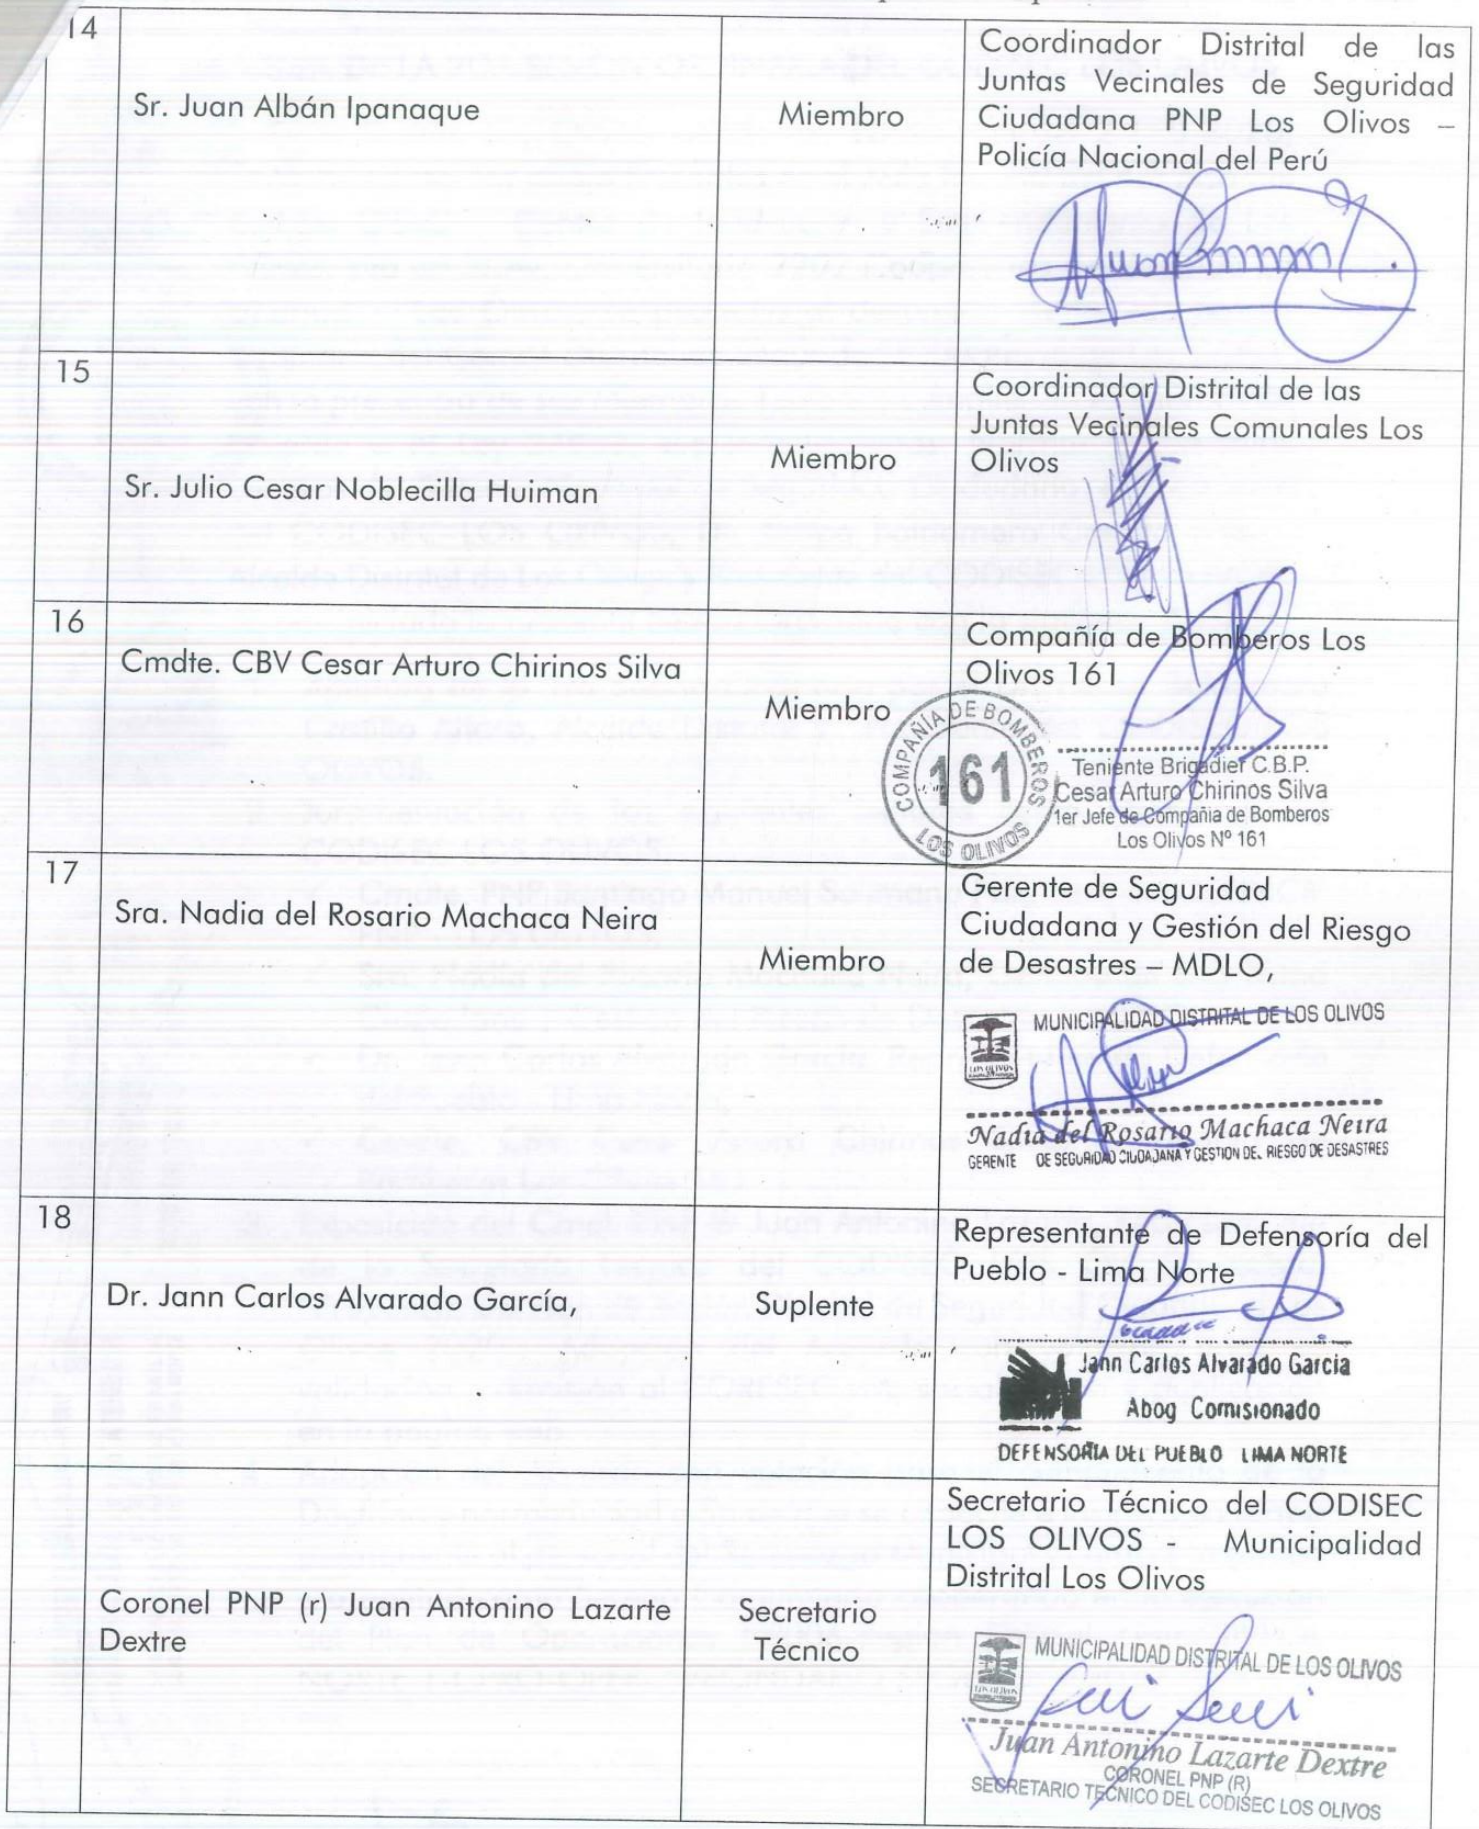 14
Sr. Juan Albán Ipanaque
Miembro
Coordinador Distrital de las
Juntas Vecinales de Seguridad
Ciudadana PNP Los Olivos –
Policía Nacional del Perú
15
Sr. Julio Cesar Noblecilla Huiman
Miembro
Coordinador Distrital de las
Juntas Vecinales Comunales Los
Olivos
16
Cmdte. CBV Cesar Arturo Chirinos Silva
Miembro
Compañía de Bomberos Los
Olivos 161
COMPAÑÍA DE BOMBEROS
161
LOS OLIVOS
Teniente Brigadier C.B.P.
Cesar Arturo Chirinos Silva
1er Jefe de Compañia de Bomberos
Los Olivos Nº 161
17
Sra. Nadia del Rosario Machaca Neira
Miembro
Gerente de Seguridad
Ciudadana y Gestión del Riesgo
de Desastres – MDLO,
MUNICIPALIDAD DISTRITAL DE LOS OLIVOS
LOS OLIVOS
Nadia del Rosario Machaca Neira
GERENTE DE SEGURIDAD CIUDADANA Y GESTION DEL RIESGO DE DESASTRES
18
Dr. Jann Carlos Alvarado García,
Suplente
Representante de Defensoría del
Pueblo - Lima Norte
Jann Carlos Alvarado Garcia
Abog Comisionado
DEFENSORIA DEL PUEBLO LIMA NORTE
Coronel PNP (r) Juan Antonino Lazarte
Dextre
Secretario
Técnico
Secretario Técnico del CODISEC
LOS OLIVOS - Municipalidad
Distrital Los Olivos
MUNICIPALIDAD DISTRITAL DE LOS OLIVOS
LOS OLIVOS
Juan Antonino Lazarte Dextre
CORONEL PNP (R)
SECRETARIO TECNICO DEL CODISEC LOS OLIVOS